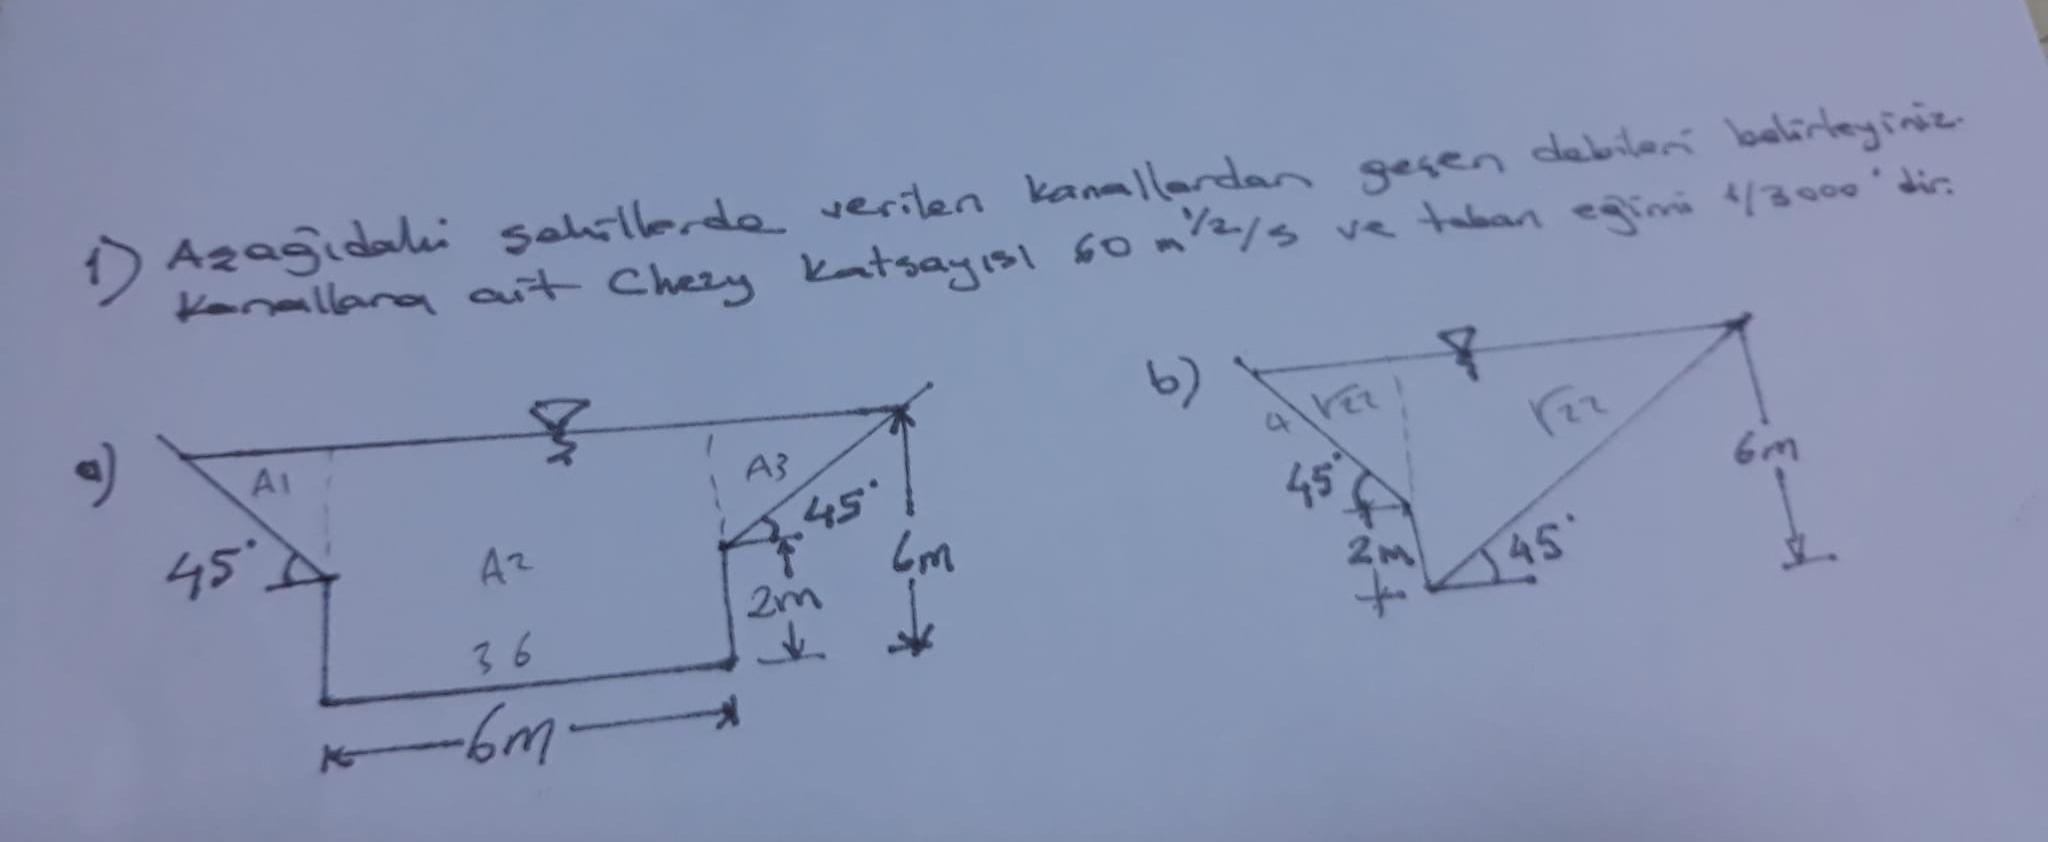 1) Aşağıdaki şekillerde verilen kanallardan geçen debileri belirleyiniz.
Kanallara ait Chezy Katsayısı 60 m^1/2/s ve taban eğimi 1/3000'dir.
a)
A1
A2
A3
45°
45°
2m
6m
36
6m
b)
4
√22
√22
45°
2m
45°
6m